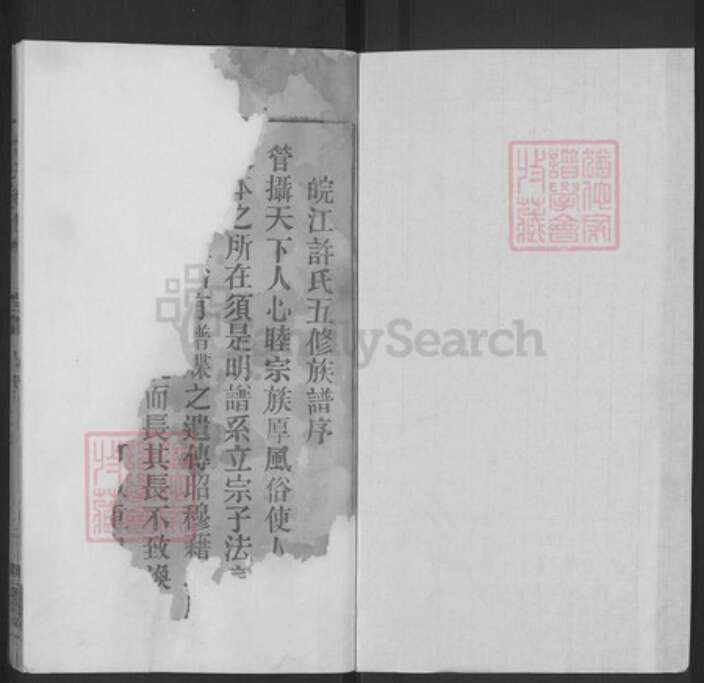 皖江許氏五修族譜序
管攝天下人心睦宗族厚風俗使人
本之所在須是明譜系立宗子法
有譜牒之遺傳昭穆藉
而長其長不致渙
譜學會
特藏
FamilySearch